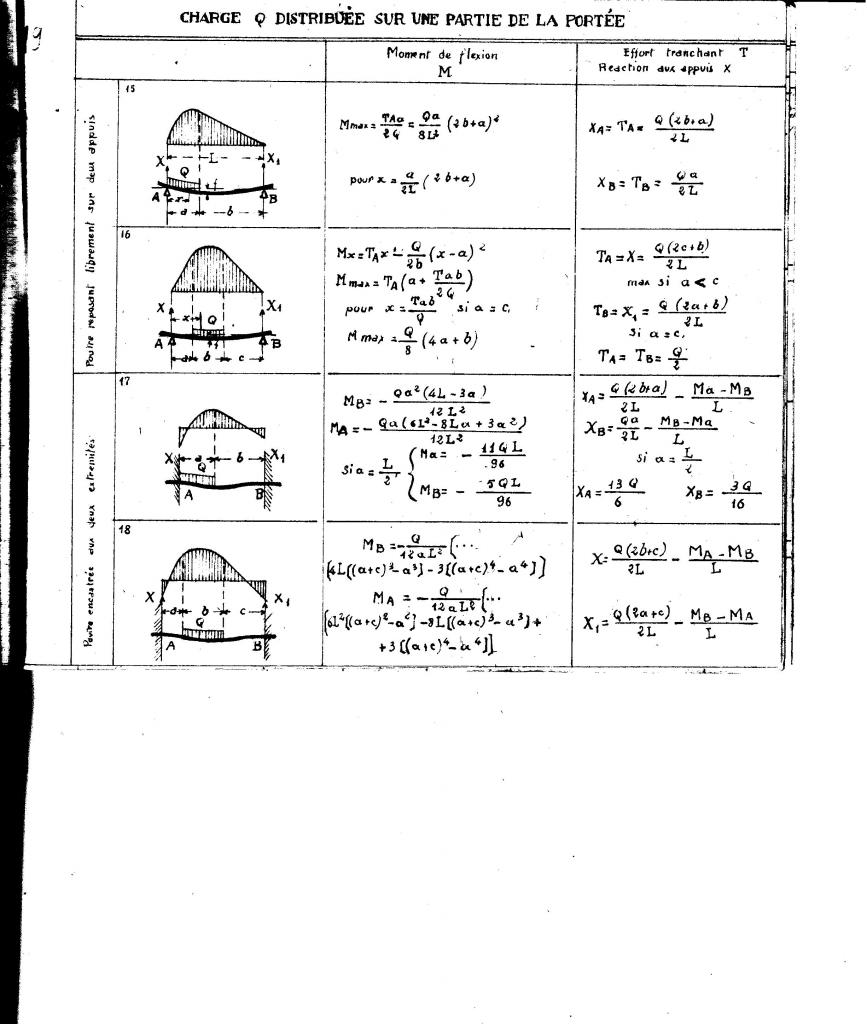 19
CHARGE Q DISTRIBUÉE SUR UNE PARTIE DE LA PORTÉE
Moment de flexion
M
Effort tranchant T
Reaction aux appuis X
Poutre reposant librement sur deux appuis
15
L
X X1
Q
f
A x B
a b
Mmax = TAa/2Q = Qa/8L² (2b+a)²
pour x = a/2L (2b+a)
XA = TA = Q(2b+a)/2L
XB = TB = Qa/2L
16
X X1
x Q
f
A B
a b c
Mx = TAx - Q/2b (x-a)²
Mmax = TA(a + Tab/2Q)
pour x = Tab/Q si a = c,
M max = Q/8 (4a+b)
TA = X = Q(2c+b)/2L
max si a < c
TB = X1 = Q(2a+b)/2L
si a=c,
TA = TB = Q/2
Poutre encastrée aux deux extremités
17
X a b X1
Q
A B
MB = - Qa²(4L-3a)/12L²
MA = - Qa(6L²-8La+3a²)/12L²
si a = L/2 { Ma = - 11QL/96
MB = - 5QL/96
XA = Q(2b+a)/2L - Ma-MB/L
XB = Qa/2L - MB-Ma/L
si a = L/2
XA = 13Q/6 XB = 3Q/16
18
X a b c X1
Q
A B
MB = - Q/12aL² {...
{4L[(a+c)³-a³]-3[(a+c)⁴-a⁴]}
MA = - Q/12aL² {...
{6L²[(a+c)²-a²]-8L[(a+c)³-a³]+
+3[(a+c)⁴-a⁴]]
X = Q(2b+c)/2L - MA-MB/L
X1 = Q(2a+c)/2L - MB-MA/L